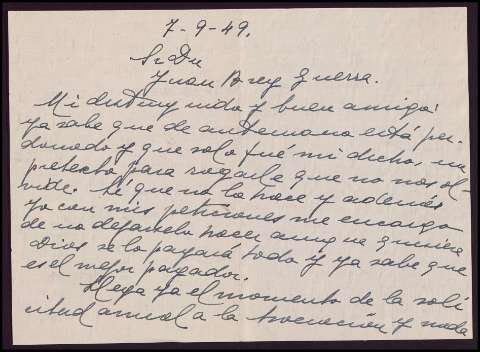 7-9-49.
Sr Dn
Juan Brey Guerra.
Mi distinguido y buen amigo:
ya sabe que de antemano está per-
donado y que solo fué mi dicho, un
pretexto para rogarle que no nos ol-
vide. Sé que no lo hace y además
yo con mis peticiones me encargo
de no dejarselo hacer aunque quiera
Dios se lo pagará todo y ya sabe que
es el mejor pagador.
Llega ya el momento de la soli
citud anual a la y nada